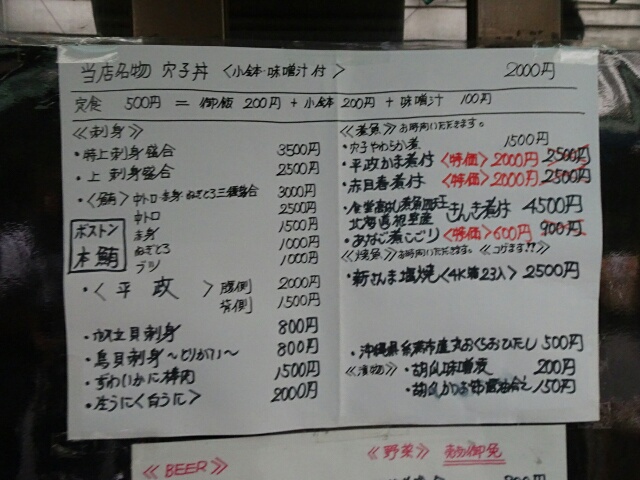 当店名物 穴子丼 〈小鉢・味噌汁付〉 2000円
定食 500円 = 御飯 200円 + 小鉢 200円 + 味噌汁 100円
≪刺身≫
・特上刺身盛合 3500円
・上 刺身盛合 2500円
・〈鮪〉中トロ 赤身 ねぎとろ三種盛合 3000円
ボストン本鮪
中トロ 2500円
赤身 1500円
ねぎとろ 1000円
ブツ 1000円
・〈平政〉腹側 2000円
背側 1500円
・帆立貝刺身 800円
・鳥貝刺身〜とりがい〜 800円
・ずわいかに棒肉 1500円
・生うに〈白うに〉 2000円
≪煮魚≫お時間いただきます。
・穴子やわらか煮 1500円
・平政かま煮付 〈特価〉2000円 2500円
・赤目春煮付 〈特価〉2000円 2500円
北海道根室産 きんき煮付 4500円
・あなご煮こごり 〈特価〉600円 900円
≪焼魚≫お時間いただきます。 ≪コゲます!?≫
・新さんま塩焼〈4K箱23入〉 2500円
・沖縄県糸満市産丸おくらおひたし 500円
≪漬物≫・胡瓜味噌漬 200円
・胡瓜かつお节醤油合え 150円
≪BEER≫
≪野菜≫ 売切御免